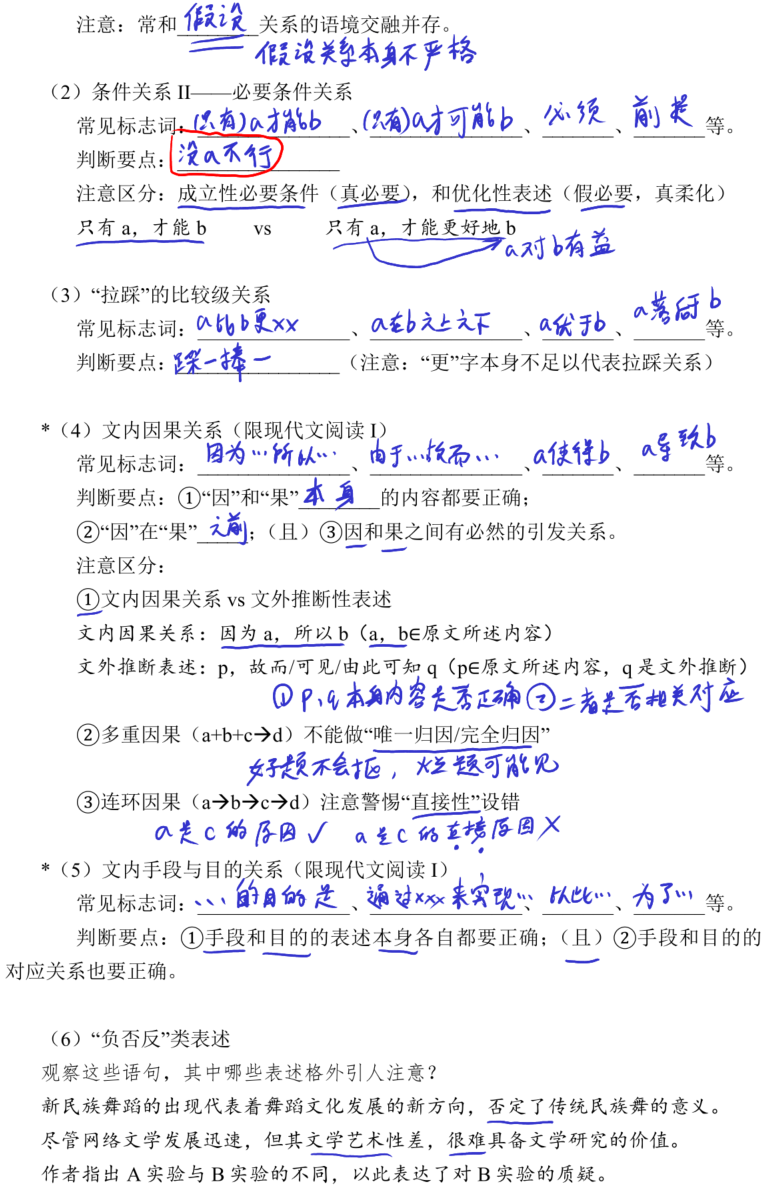 注意：常和假设关系的语境交融并存。
假设关系本身不严格
（2）条件关系 II——必要条件关系
常见标志词：(只有)a才能b、(只有)a才可能b、必须、前提等。
判断要点：没a不行
注意区分：成立性必要条件（真必要），和优化性表述（假必要，真柔化）
只有 a，才能 b vs 只有 a，才能更好地 b
a对b有益
（3）“拉踩”的比较级关系
常见标志词：a比b更xx、a在b之上之下、a优于b、a落后b等。
判断要点：踩一捧一（注意：“更”字本身不足以代表拉踩关系）
*（4）文内因果关系（限现代文阅读 I）
常见标志词：因为…所以…、由于…故而…、a使得b、a导致b等。
判断要点：①“因”和“果”本身的内容都要正确；
②“因”在“果”之前；（且）③因和果之间有必然的引发关系。
注意区分：
①文内因果关系 vs 文外推断性表述
文内因果关系：因为 a，所以 b（a，b∈原文所述内容）
文外推断表述：p，故而/可见/由此可知 q（p∈原文所述内容，q 是文外推断）
①p、q本身内容是否正确②二者是否相关对应
②多重因果（a+b+c→d）不能做“唯一归因/完全归因”
好题不会抠，烂题可能见
③连环因果（a→b→c→d）注意警惕“直接性”设错
a是c的原因√ a是c的直接原因×
*（5）文内手段与目的关系（限现代文阅读 I）
常见标志词：…的目的是、通过xxx来实现…、以此…、为了…等。
判断要点：①手段和目的的表述本身各自都要正确；（且）②手段和目的的
对应关系也要正确。
（6）“负否反”类表述
观察这些语句，其中哪些表述格外引人注意？
新民族舞蹈的出现代表着舞蹈文化发展的新方向，否定了传统民族舞的意义。
尽管网络文学发展迅速，但其文学艺术性差，很难具备文学研究的价值。
作者指出 A 实验与 B 实验的不同，以此表达了对 B 实验的质疑。